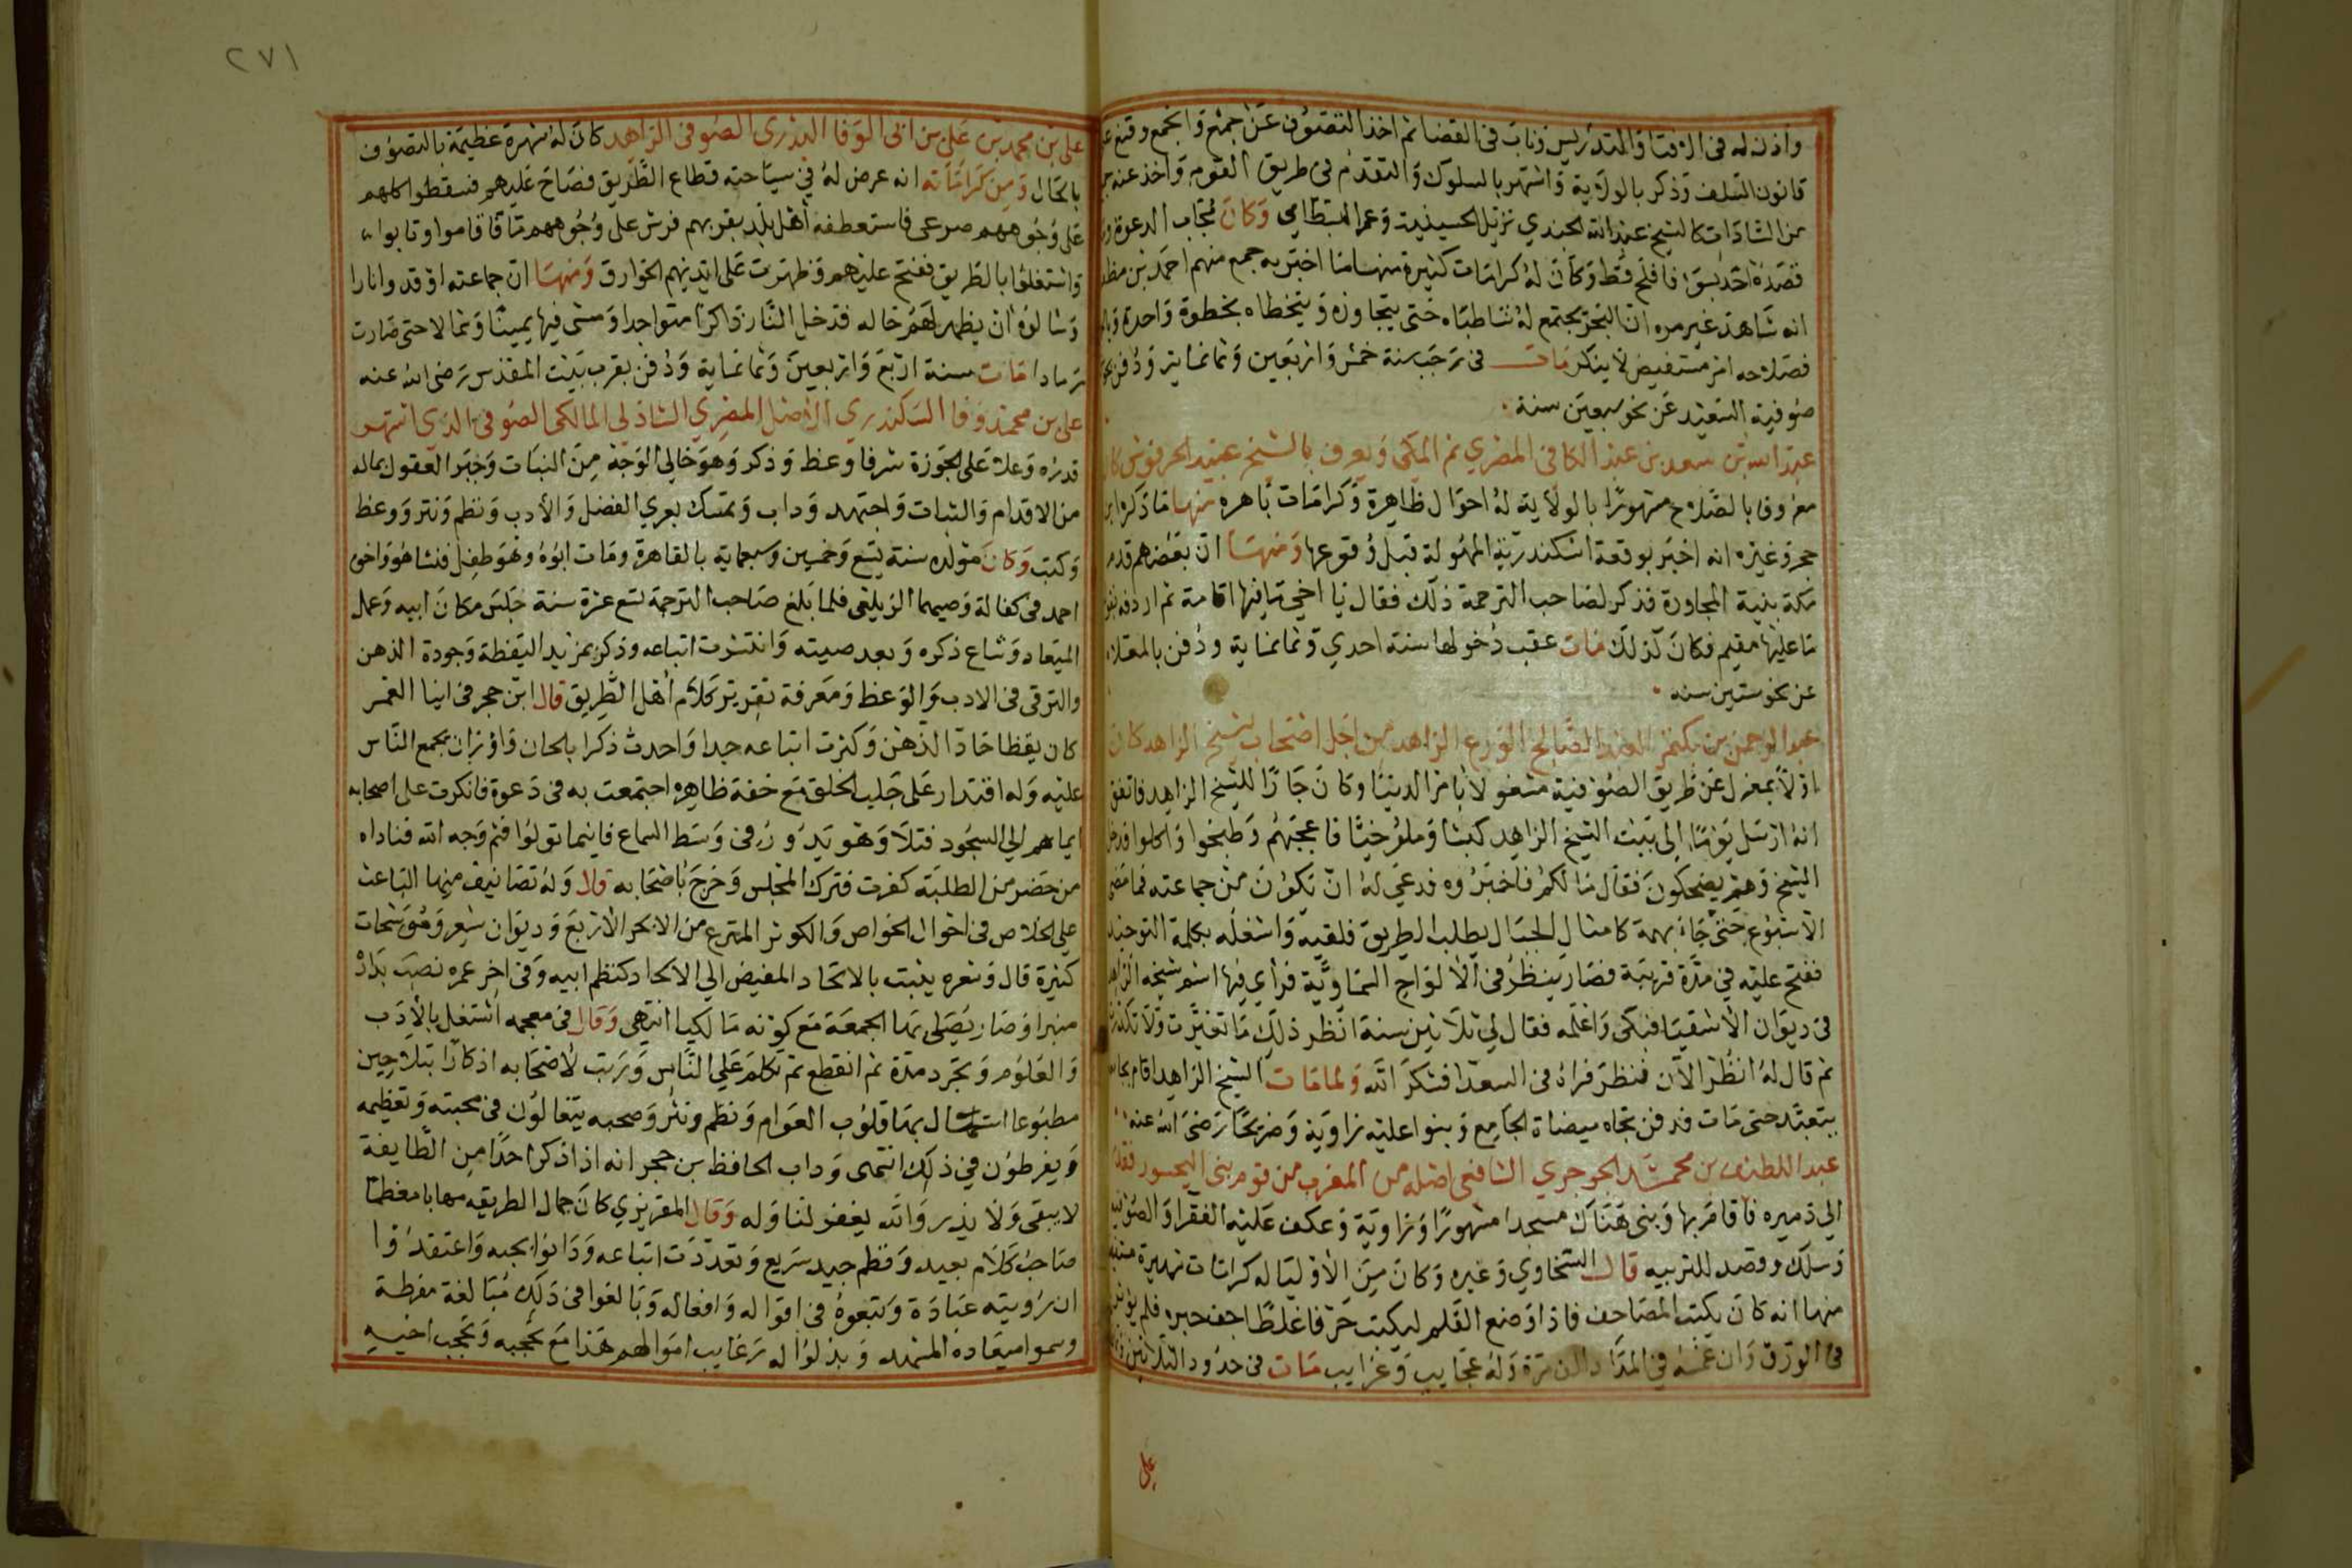 واذن له فى الافتا والتدريس وناب فى القضا ثم اخذ التصوف عن جمع والجمع وقنع
قانون السلف وذكر بالولاية واشتهر بالسلوك والتقدم فى طريق القوم واخذ عنه
من السادات كالشيخ عبد الله الجندي نزيل الحسينية وعمر البسطامي وكان مجاب الدعوة
قصده احد بسوء فافلح قط وكان له كرامات كثيرة منها ما اخبر به جمع منهم احمد بن مظفر
انه شاهد غير مره ان البحر يجتمع له شاطباه حتى يتجاوزه ويتخطاه بخطوة واحدة
فصلاحه امر مستفيض لا ينكر مات فى رجب سنة خمس واربعين وثمانماية ودفن
صوفية السعيد عن نحو سبعين سنة
عبد الله بن سعد بن عبد الكافى المصري ثم المكى ويعرف بالشيخ عبيد الحرفوش
معروفا بالصلاح مشهورا بالولاية له احوال ظاهرة وكرامات باهره منها ما ذكر
حجر وغيره انه اخبر بوقعة اسكندرية المهولة قبل وقوعها ومنها ان بعضهم قدم
مكة بنية المجاورة فذكر لصاحب الترجمة ذلك فقال يا اخي ما فيها اقامة ثم اردفه
ما عليها مقيم فكان كذلك مات عقب دخولها سنة احدي وثمانماية ودفن بالمعلاه
عن نحو ستين سنه
عبد الرحمن بن بكتمر العبد الصالح الورع الزاهد من اجل اصحاب الشيخ الزاهد كان
اولا بمعزل عن طريق الصوفية مشغولا بامر الدنيا وكان جارا للشيخ الزاهد فاتفق
انه ارسل يوما الى بيت الشيخ الزاهد كبشا وملوخيا فاعجبهم وطبخوا واكلوا
الشيخ وهم يضحكون فقال ما لكم فاخبروه فدعي له ان يكون من جماعته فما مضى
الاسبوع حتى جاء بهمة كامثال الجبال يطلب الطريق فلقيه واشغله بكلمة التوحيد
ففتح عليه في مدة قريبة فصار ينظر فى الالواح السماوية فراي فيها اسم شيخه
فى ديوان الاشقيا فبكى واعلمه فقال لي ثلاثين سنة انظر ذلك ما تغيرت ولا تكدرت
ثم قال له انظر الان فنظر فراه فى السعدا فشكر الله ولما مات الشيخ الزاهد اقام
يتعبد حتى مات فدفن تجاه ميضاة الجامع وبنوا عليه زاوية وضريحا رضى الله عنه
عبد اللطيف بن محمد الجوجري الشافعى اصله من المغرب من قوم بنى
الي دميره فاقام بها وبنى هناك مسجدا مشهورا وزاوية وعكف عليه الفقرا
وسلك وقصد للتربيه قال السخاوي وغيره وكان من الاوليا له كرامات شهيرة
منها انه كان يكتب المصاحف فاذا وضع القلم ليكتب حرفا غلطا جف حبره فلم
فى الورق وان غمسه في المداد الف مرة وله عجايب وغرايب مات فى حدود الثلاثين
على
٢٧١
على بن محمد بن على بن ابى الوفا البدرى الصوفى الزاهد كان له شهرة عظيمة بالتصوف
بالحال ومن كراماته انه عرض له في سياحته قطاع الطريق فصاح عليهم فسقطوا كلهم
على وجوههم صرعى فاستعطفه اهل بلد بقربهم فرش على وجوههم ماء فاقاموا وتابوا
واشتغلوا بالطريق ففتح عليهم وظهرت على ايديهم الخوارق ومنها ان جماعته اوقدوا نارا
وسالوه ان يظهر لهم حاله فدخل النار ذاكرا متواجدا ومشى فيها يمينا وشمالا حتى صارت
رمادا مات سنة اربع واربعين وثمانماية ودفن بقرب بيت المقدس رضى الله عنه
على بن محمد وفا السكندري الاصل المصري الشاذلى المالكى الصوفى الذي اشتهر
قدره وعلا على الجوزة شرفا وعظ وذكر وهو خالي الوجه من النبات وحير العقول بماله
من الاقدام والثبات واجتهد وداب وتمسك بعري الفضل والأدب ونظم ونثر ووعظ
وكتب وكان مولده سنة تسع وخمسين وسبعماية بالقاهرة ومات ابوه وهو طفل فنشا هو واخوه
احمد فى كفالة وصيهما الزيلعى فلما بلغ صاحب الترجمة تسع عشرة سنة جلس مكان ابيه وعمل
الميعاد وشاع ذكره وبعد صيته وانتشرت اتباعه وذكر بمزيد اليقظة وجودة الذهن
والترقى فى الادب والوعظ ومعرفة تقرير كلام اهل الطريق قال ابن حجر فى انبا الغمر
كان يقظا حاد الذهن وكثرت اتباعه جدا واحدث ذكرا بالحان واوزان يجمع الناس
عليه وله اقتدار على جلب الخلق مع خفة ظاهره اجتمعت به فى دعوة فانكرت على اصحابه
ايماهم الي السجود فتلا وهو يدور فى وسط السماع فاينما تولوا فثم وجه الله فناداه
من حضر من الطلبة كفرت فترك المجلس وخرج باصحابه قال وله تصانيف منها الباعث
على الخلاص فى احوال الخواص والكوثر المترع من الابحر الاربع وديوان شعر وموشحات
كثيرة قال وشعره ينبت بالاتحاد المفيض الي الالحاد كنظم ابيه وفى اخر عمره نصب بداره
منبرا وصار يصلى بها الجمعة مع كونه مالكيا انتهى وقال فى معجمه اشتغل بالأدب
والعلوم وتجرد مدة ثم انقطع ثم تكلم على الناس ورتب لاصحابه اذكارا بتلاحين
مطبوعا استمال بها قلوب العوام ونظم ونثر وصحبه يتغالون فى محبته وتعظيمه
ويفرطون في ذلك انتهى وداب الحافظ بن حجر انه اذا ذكر احدا من الطايفة
لا يبقى ولا يذر والله يغفر لنا وله وقال المقريزي كان جمال الطريقه مهابا معظما
صاحب كلام بعيد ونظم جيد سريع وتعددت اتباعه ودانوا بحبه واعتقدوا
ان رويته عبادة وتبعوه فى اقواله وافعاله وبالغوا فى ذلك مبالغة مفرطة
وسموا ميعاده المشهد وبذلوا له رغايب اموالهم هذا مع تحجبه وتحجب اخيه